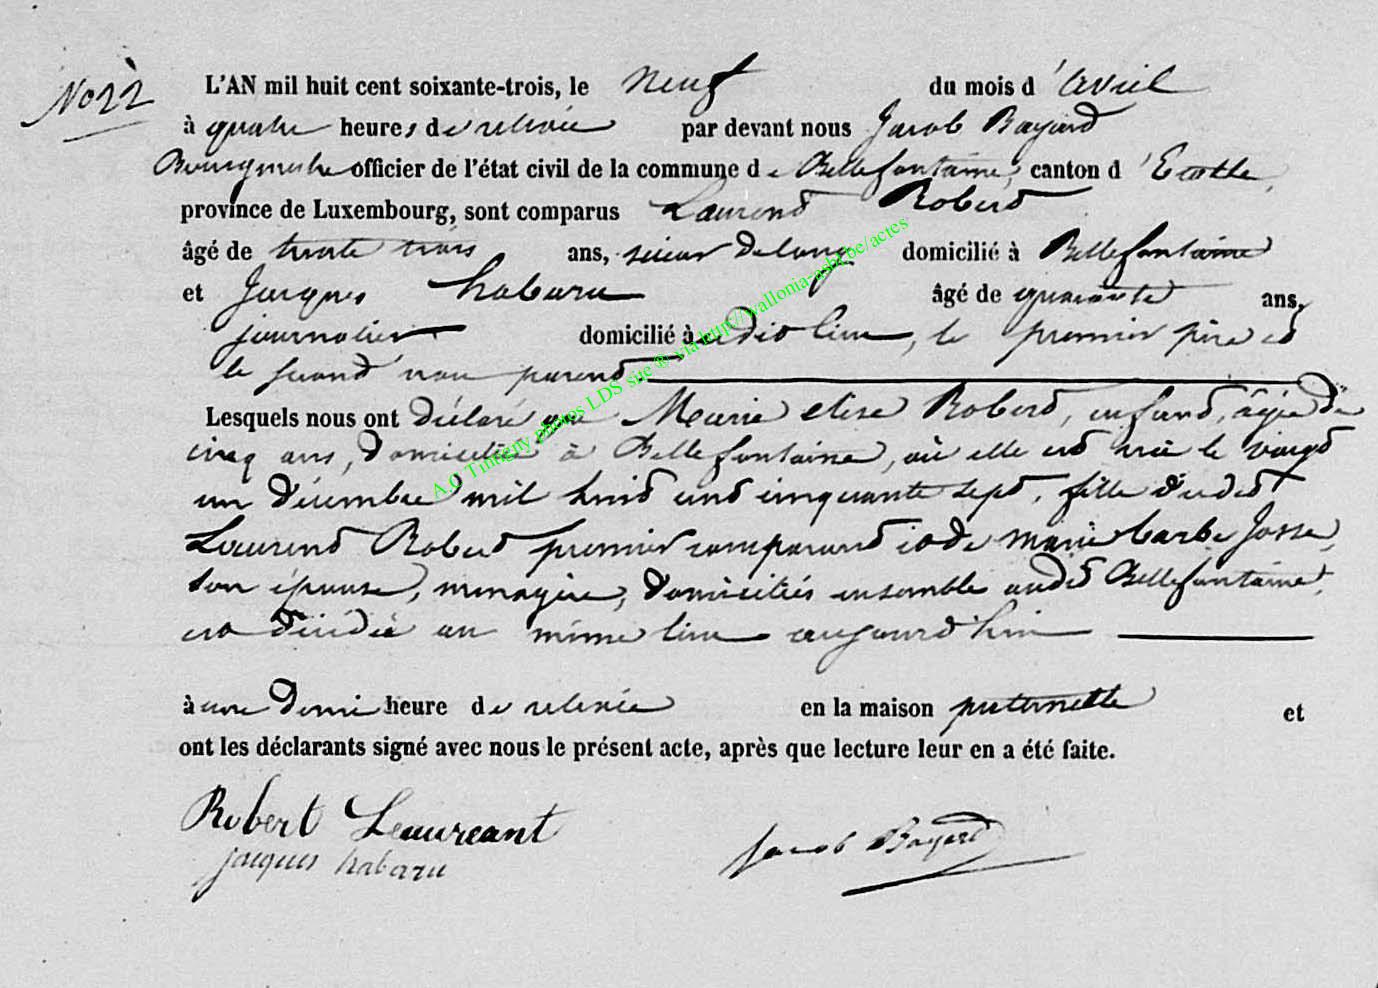 No 22
L'AN mil huit cent soixante-trois, le neuf du mois d'avril
à quatre heures de relevée par devant nous Jacob Bayard
Bourgmestre officier de l'état civil de la commune de Bellefontaine, canton d'Etalle,
province de Luxembourg, sont comparus Laurend Robert
âgé de trente trois ans, scieur de long domicilié à Bellefontaine
et Jacques habaru âgé de quarante ans,
journalier domicilié à audit lieu, le premier père et
le second non parend
Lesquels nous ont déclaré que Marie elise Robert, enfand, âgée de
cinq ans, domiciliée à Bellefontaine, où elle est née le vingt
un Décembre mil huit cent cinquante sept, fille dudit
Laurend Robert premier comparand et de marie barbe Josse,
son épouse, menagère, domiciliés ensemble audit Bellefontaine,
est décédée au même lieu aujourd'hui
à une demi heure de relevée en la maison paternelle et
ont les déclarants signé avec nous le présent acte, après que lecture leur en a été faite.
Robert Laureant
jacques habaru
Jacob Bayard
A.C Tintigny photos LDS site ® via http://wallonia-asbl.be/actes